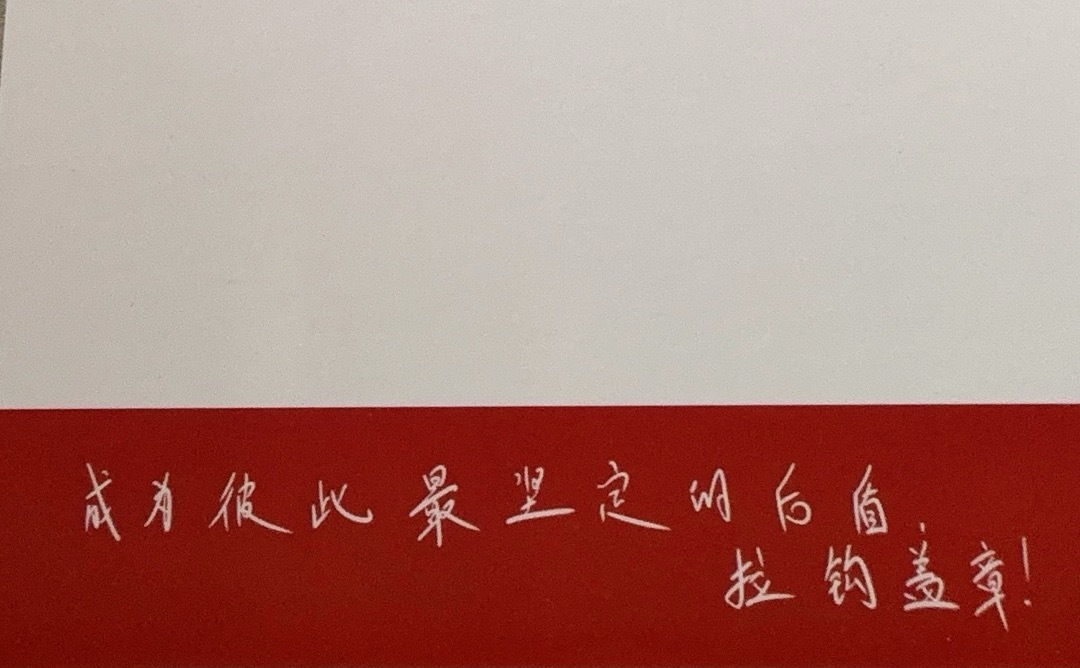 成为彼此最坚定的后盾.
拉钩盖章!